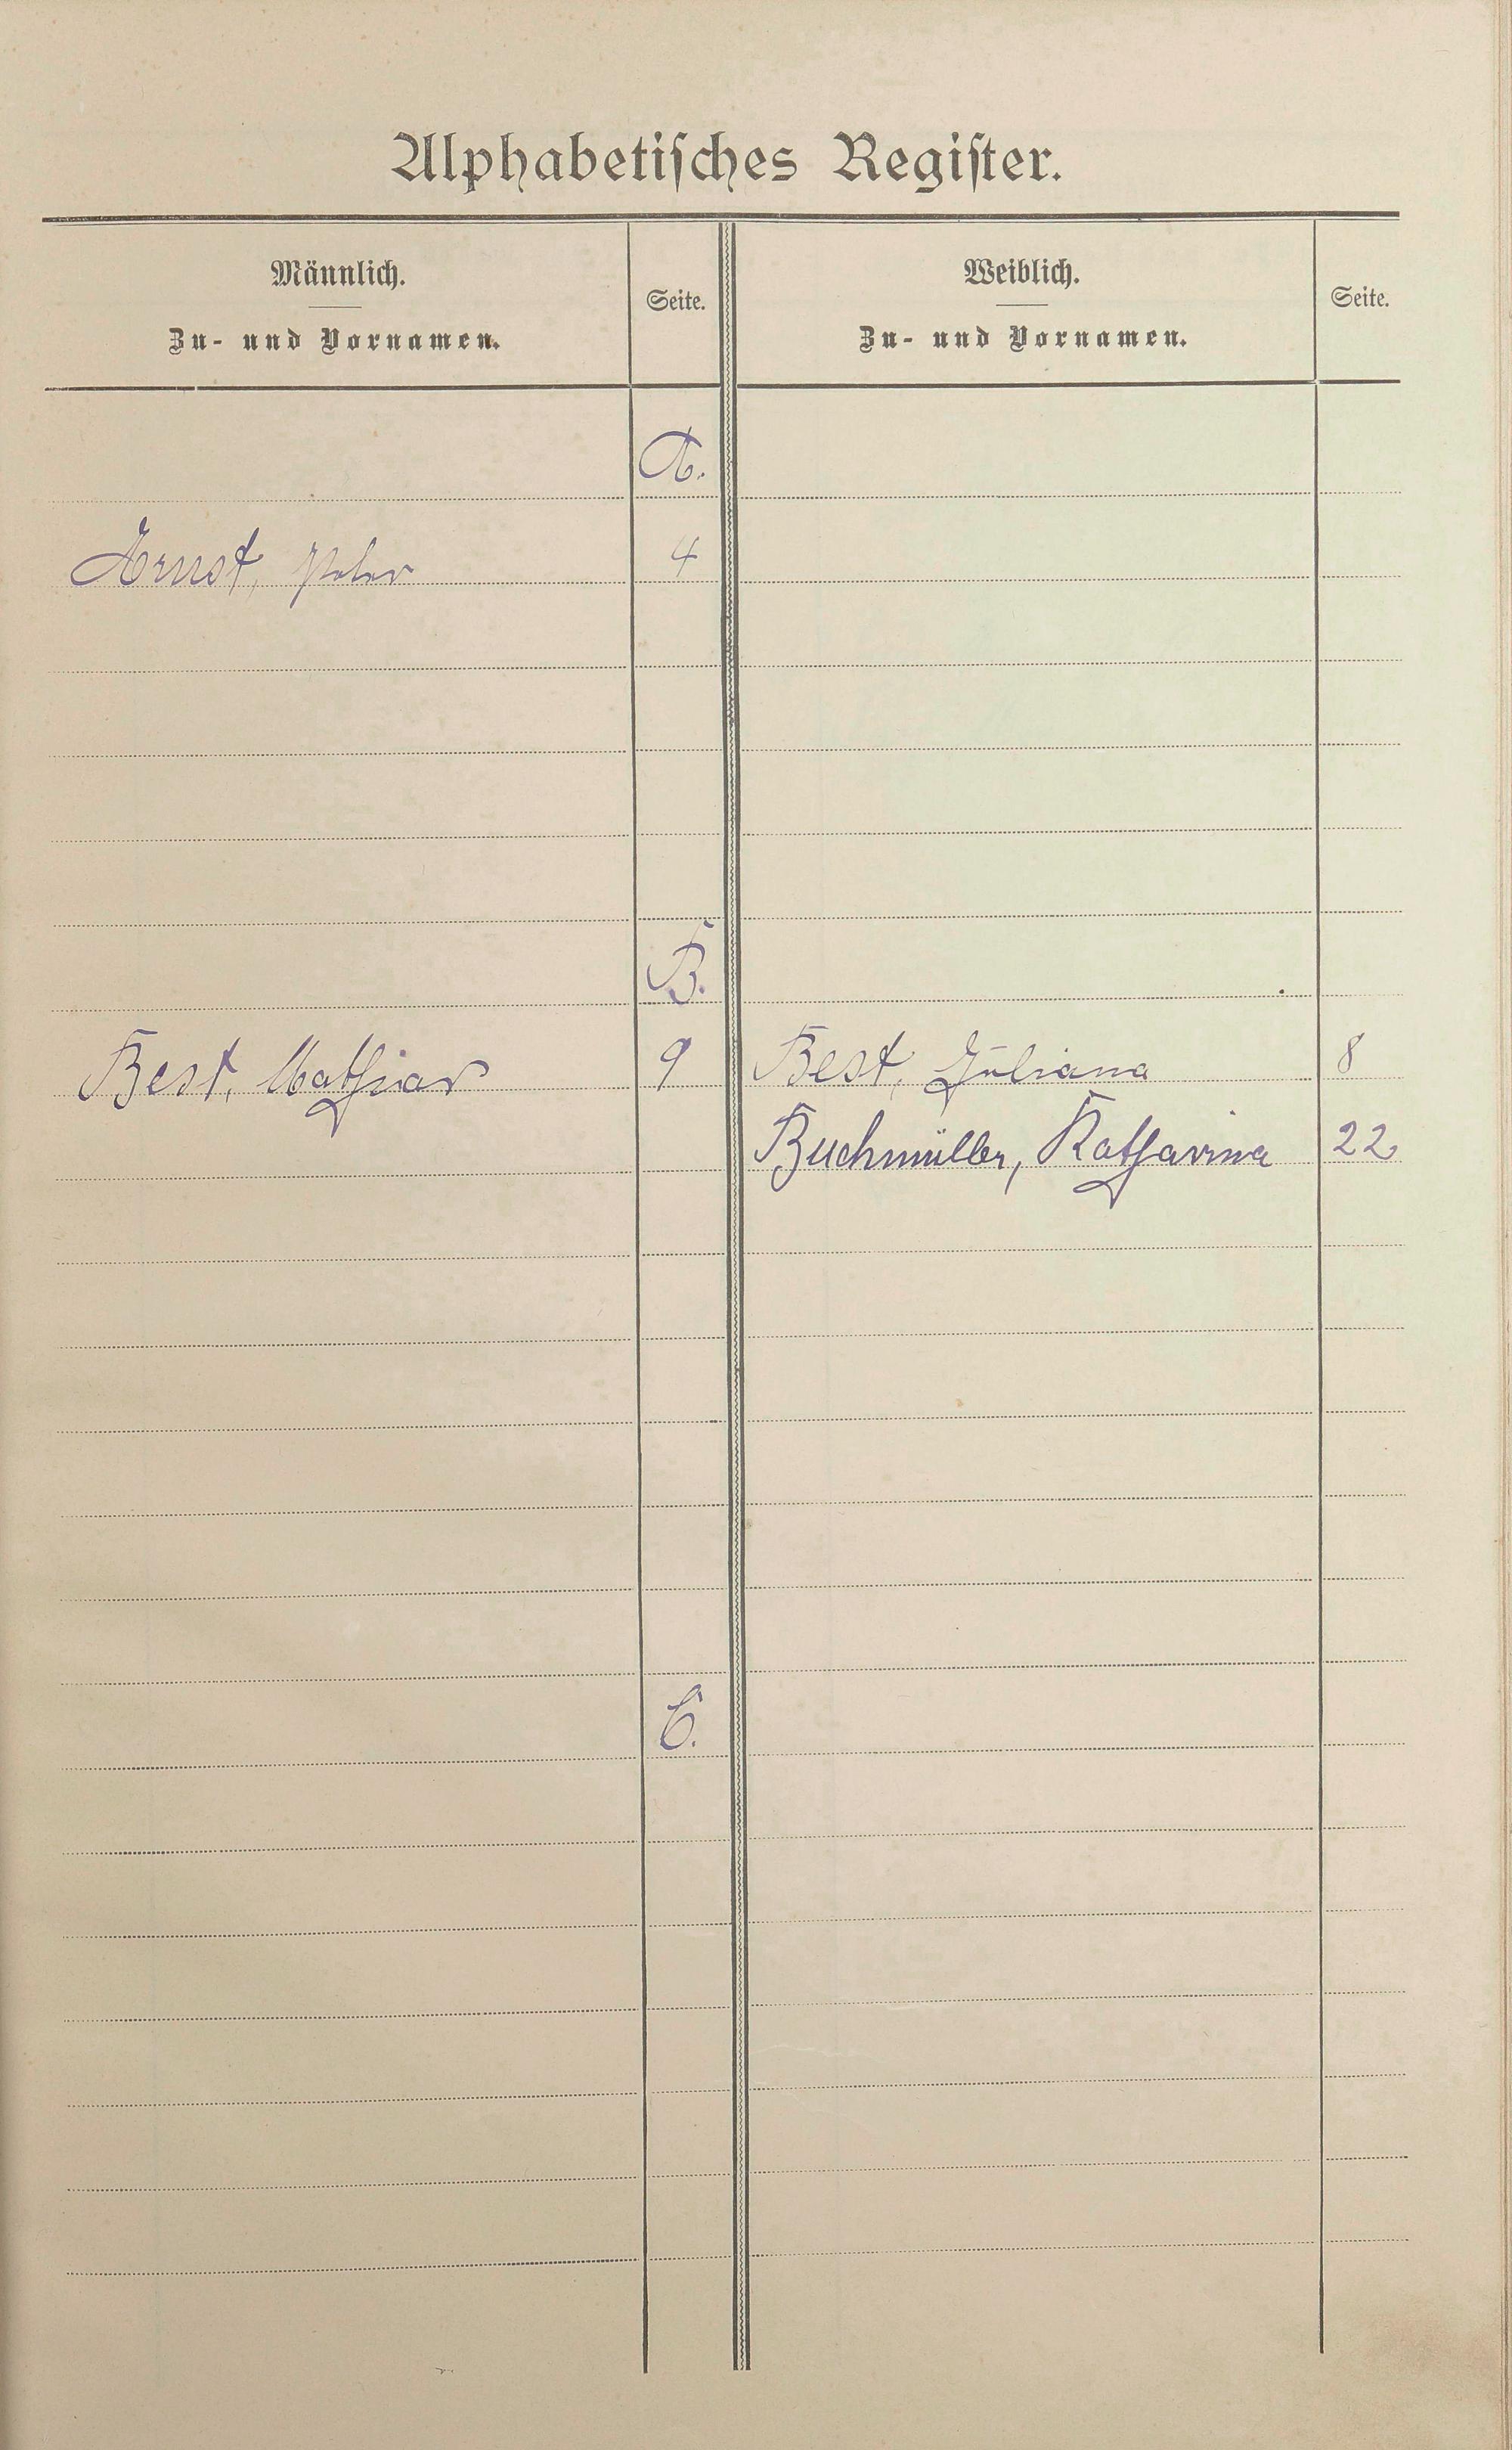 Alphabetisches Register.
Männlich.
Zu- und Vornamen.
Seite.
Weiblich.
Zu- und Vornamen.
Seite.
A.
Arnst, Peter 4
B.
Best, Mathias 9 Best, Juliana 8
Buchmüller, Katharina 22
C.